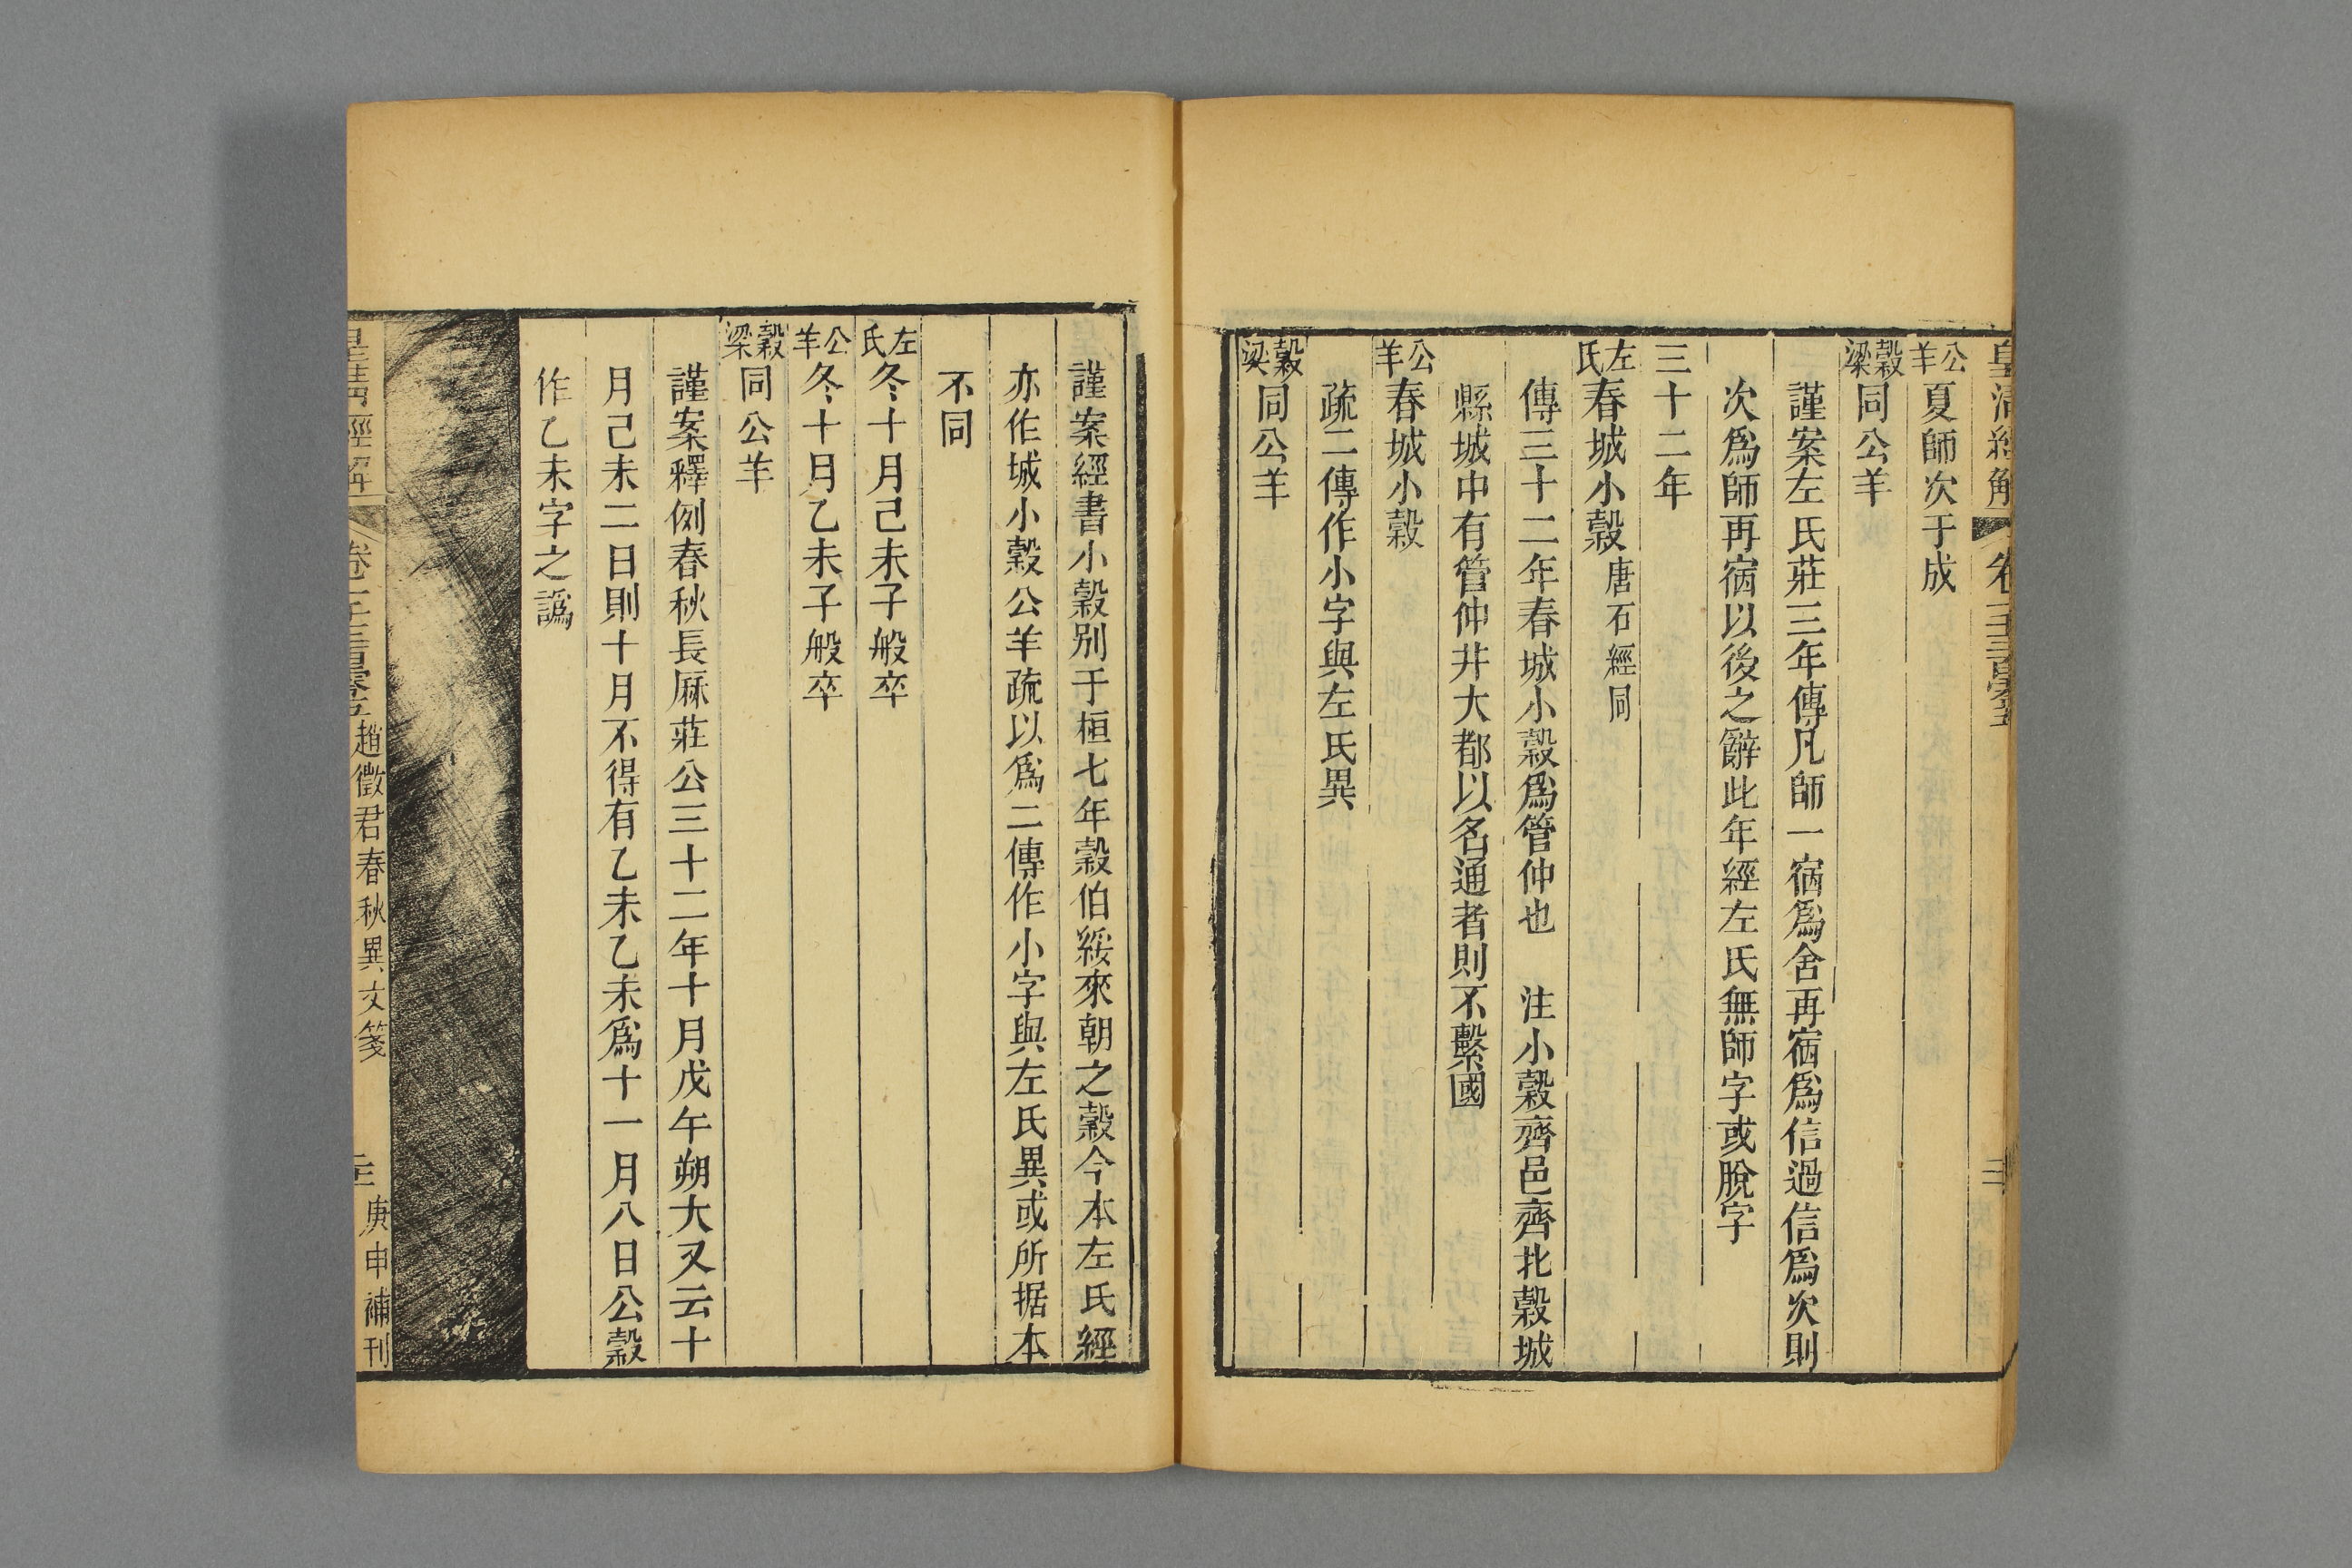 皇清經解 卷一千三百零五
公羊夏師次于成
穀梁同公羊
謹案左氏莊三年傳凡師一宿爲舍再宿爲信過信爲次則
次爲師再宿以後之辭此年經左氏無師字或脫字
三十二年
左氏春城小穀唐石經同
傳三十二年春城小穀爲管仲也 注小穀齊邑齊北穀城
縣城中有管仲井大都以名通者則不繫國
公羊春城小穀
疏二傳作小字與左氏異
穀梁同公羊
謹案經書小穀別于桓七年穀伯綏來朝之穀今本左氏經
亦作城小穀公羊疏以爲二傳作小字與左氏異或所据本
不同
左氏冬十月己未子般卒
公羊冬十月乙未子般卒
穀梁同公羊
謹案釋例春秋長厤莊公三十二年十月戊午朔大又云十
月己未二日則十月不得有乙未乙未爲十一月八日公穀
作乙未字之譌
皇清經解 卷一千三百零五 趙徵君春秋異文箋 庚申補刊